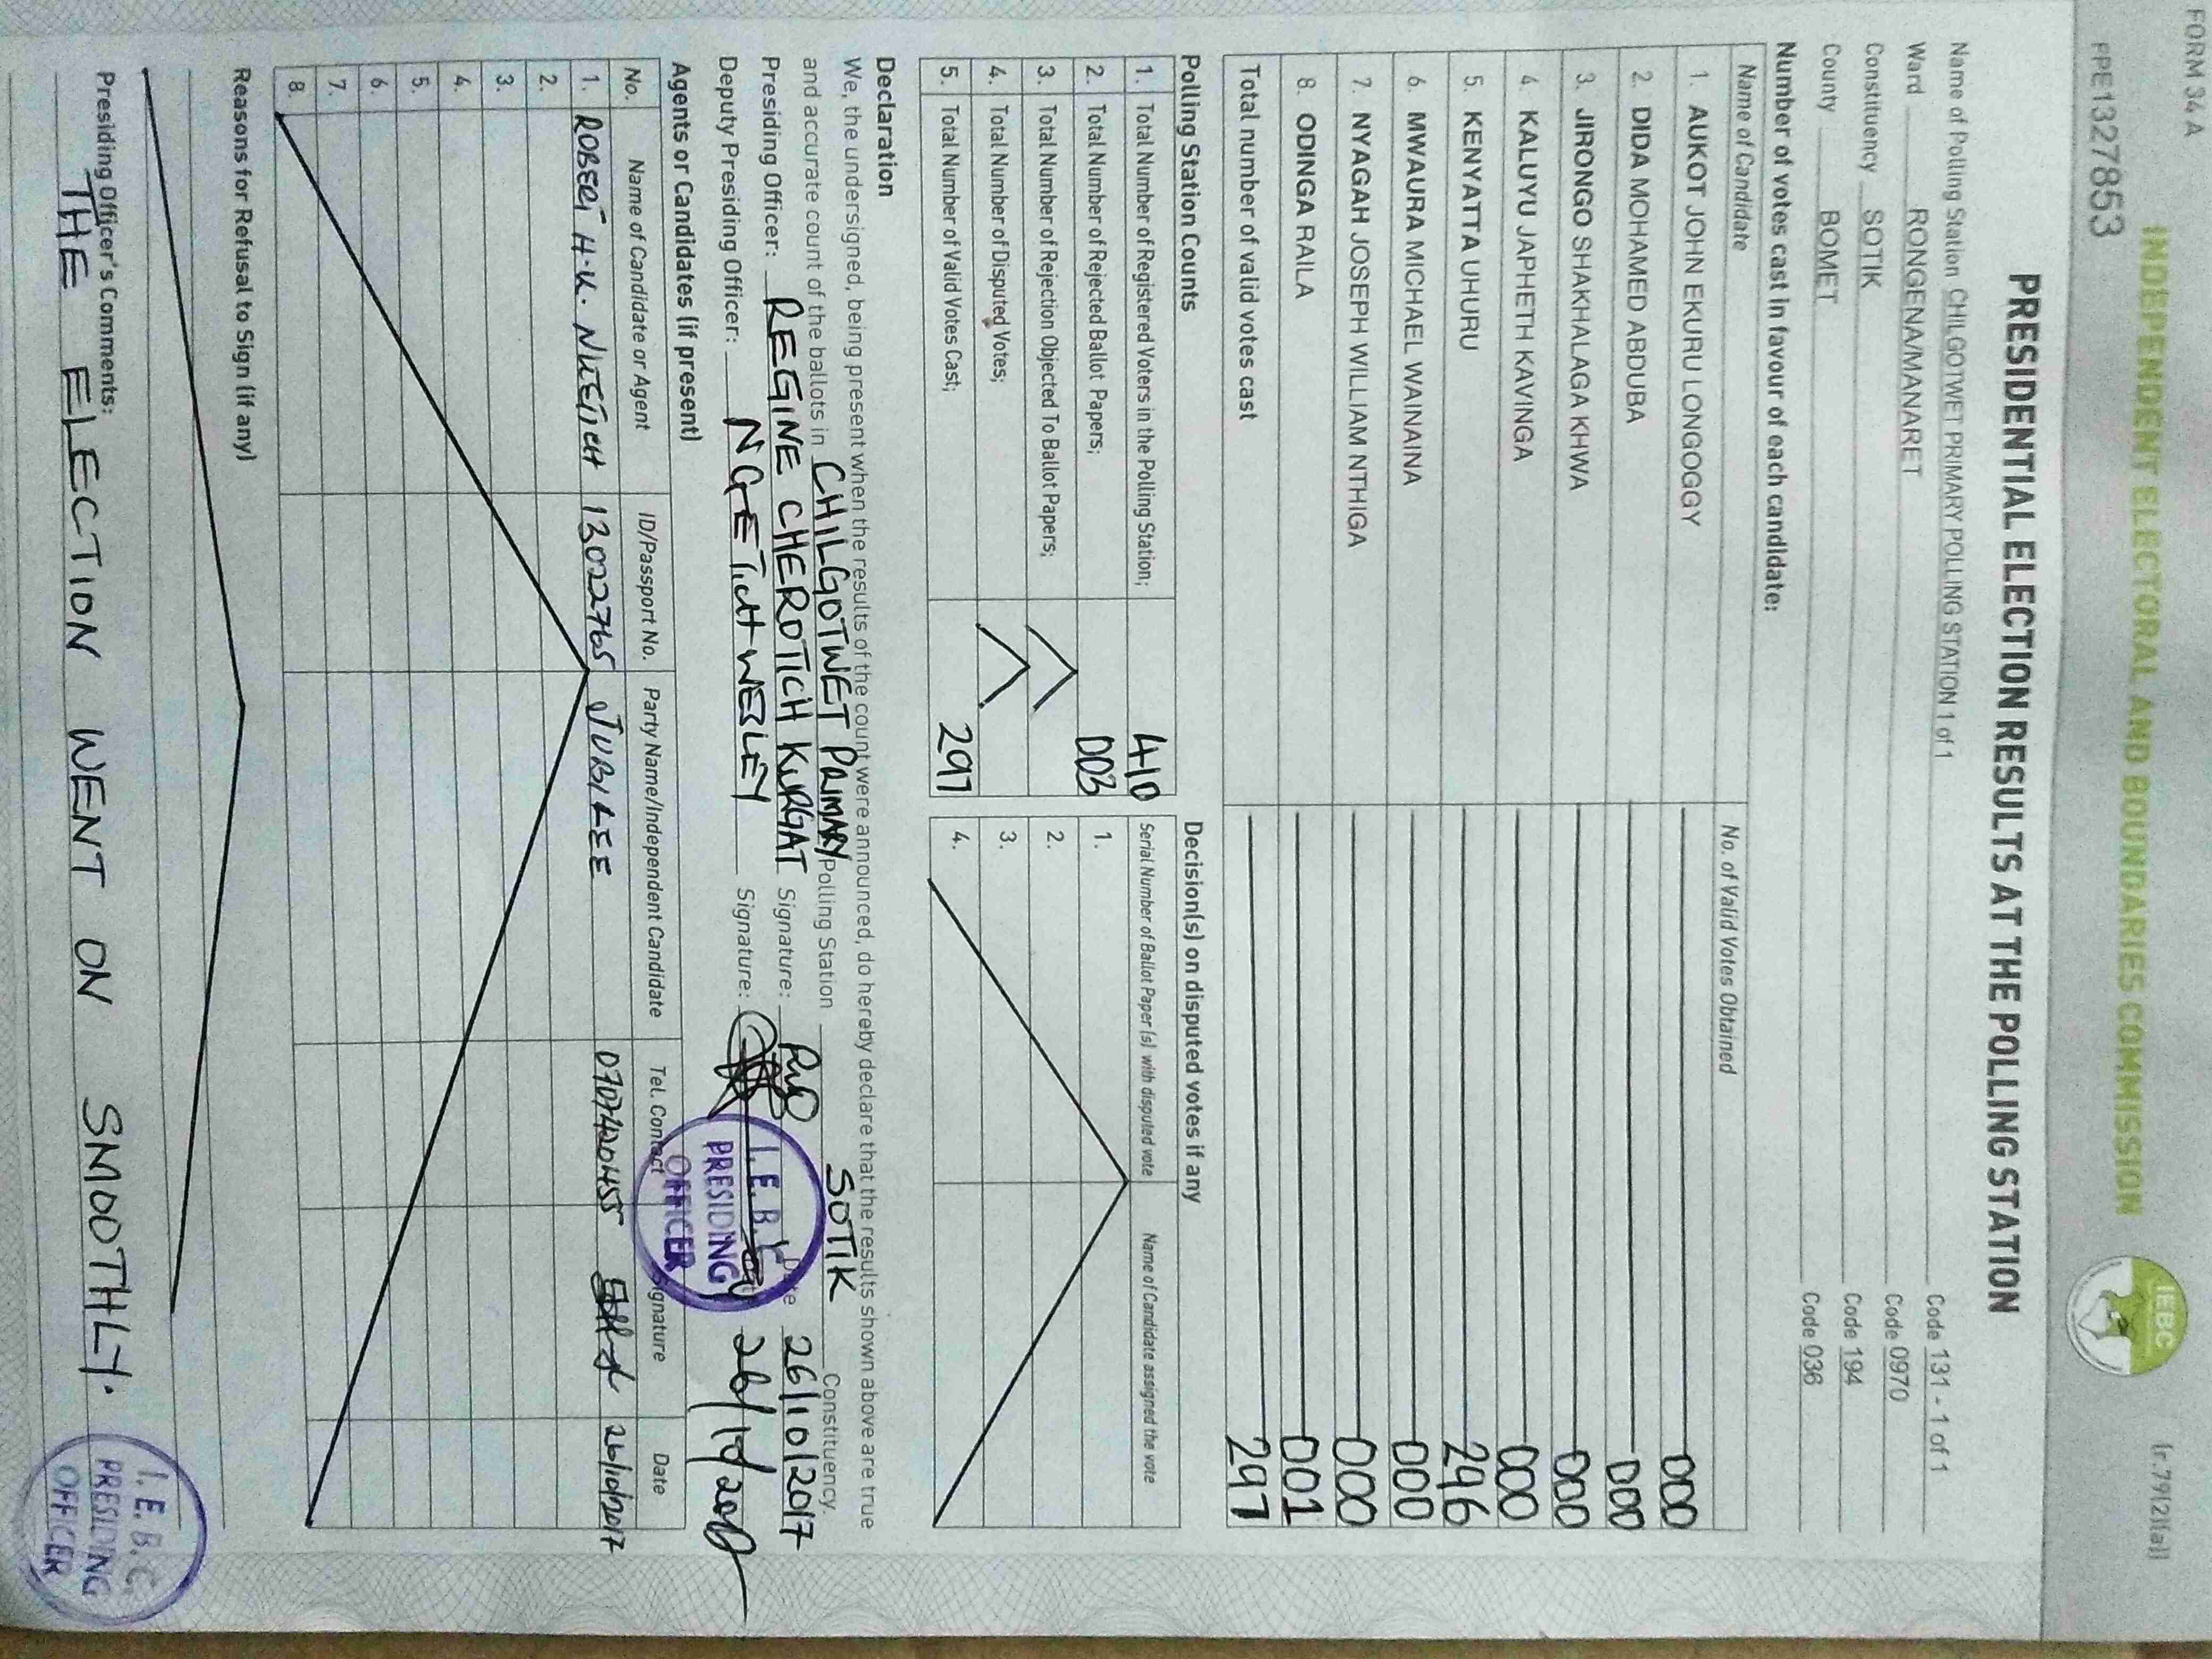 FORM 34 A
(r.79(2)(a))
INDEPENDENT ELECTORAL AND BOUNDARIES COMMISSION
IEBC
PPE1327853
PRESIDENTIAL ELECTION RESULTS AT THE POLLING STATION
Name of Polling Station CHILGOTWET PRIMARY POLLING STATION 1 of 1 Code 131 - 1 of 1
Ward RONGENA/MANARET Code 0970
Constituency SOTIK Code 194
County BOMET Code 036
Number of votes cast in favour of each candidate:
Name of Candidate No. of Valid Votes Obtained
1. AUKOT JOHN EKURU LONGOGGY 000
2. DIDA MOHAMED ABDUBA 000
3. JIRONGO SHAKHALAGA KHWA 000
4. KALUYU JAPHETH KAVINGA 000
5. KENYATTA UHURU 296
6. MWAURA MICHAEL WAINAINA 000
7. NYAGAH JOSEPH WILLIAM NTHIGA 000
8. ODINGA RAILA 001
Total number of valid votes cast 297
Polling Station Counts
1. Total Number of Registered Voters in the Polling Station; 410
2. Total Number of Rejected Ballot Papers; 003
3. Total Number of Rejection Objected To Ballot Papers;
4. Total Number of Disputed Votes;
5. Total Number of Valid Votes Cast; 297
Decision(s) on disputed votes if any
Serial Number of Ballot Paper (s) with disputed vote Name of Candidate assigned the vote
1.
2.
3.
4.
Declaration
We, the undersigned, being present when the results of the count were announced, do hereby declare that the results shown above are true
and accurate count of the ballots in CHILGOTWET PRIMARY Polling Station SOTIK Constituency.
Presiding Officer: REGINE CHEROTICH KURGAT Signature: Date 26/10/2017
Deputy Presiding Officer: NGETICH WESLEY Signature: 26/10/2017
I.E.B.C
PRESIDING
OFFICER
Agents or Candidates (if present)
No. Name of Candidate or Agent ID/Passport No. Party Name/Independent Candidate Tel. Contact Signature Date
1. ROBERT H.K. 13022765 JUBILEE 0707420455 26/10/2017
2.
3.
4.
5.
6.
7.
8.
Reasons for Refusal to Sign (if any)
Presiding Officer's Comments:
THE ELECTION WENT ON SMOOTHLY.
I.E.B.C.
PRESIDING
OFFICER